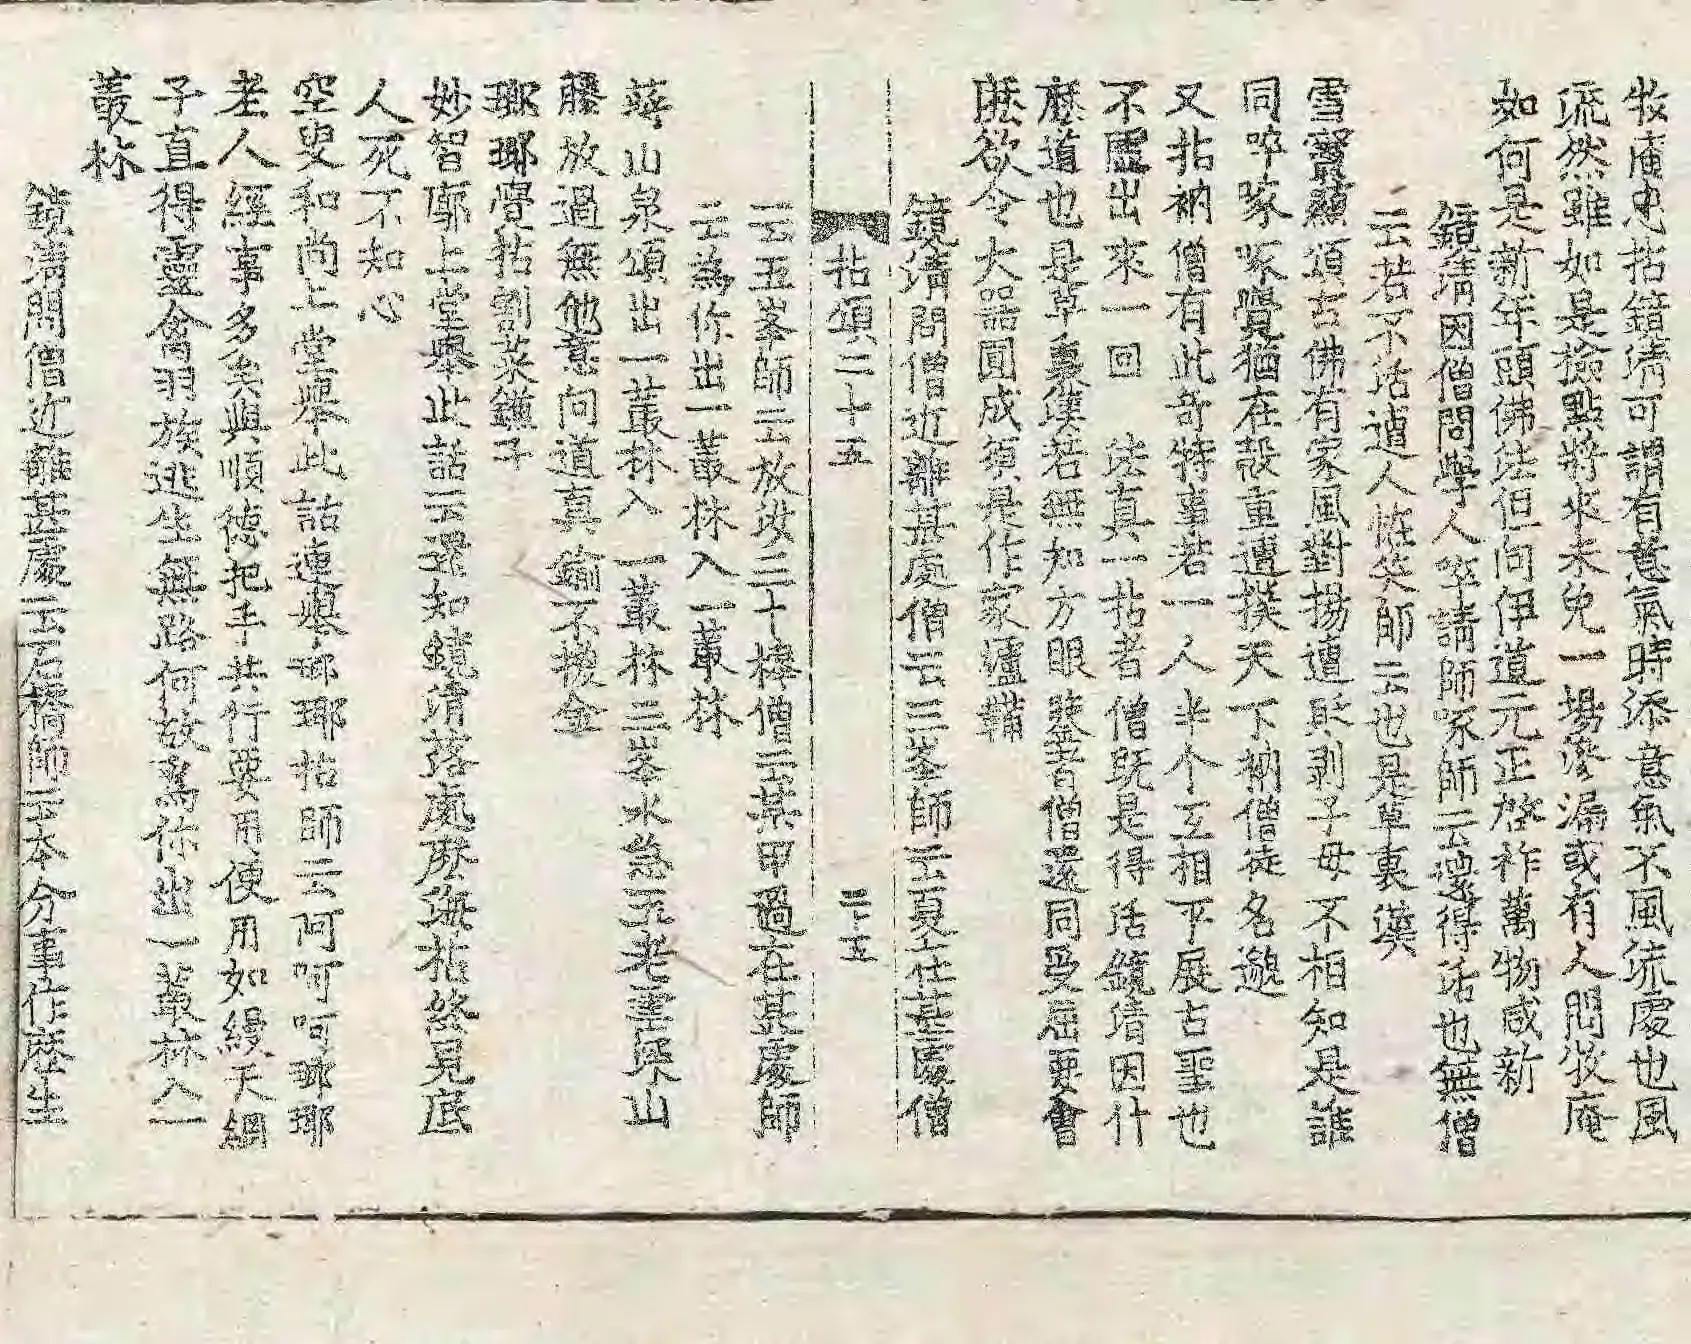 牧庵忠拈鏡清可謂有意氣時添意氣不風流處也風
流然雖如是撿點將來未免一場滲漏或有人問牧庵
如何是新年頭佛法但向伊道元正啓祚萬物咸新
鏡清因僧問學人啐請師啄師云還得活也無僧
云若不活遭人恠笑師云也是草裏漢
雪竇顯頌古佛有家風對揚遭貶剥子母不相知是誰
同啐啄啄覺猶在殼重遭撲天下衲僧徒名邈
又拈衲僧有此奇特事若一人半个互相平展古聖也
不虛出來一回 法真一拈者僧旣是得活鏡清因什
麽道也是草裏漢若無知方眼莫言者僧還同受屈要會
麽欲令大器圓成須是作家爐鞴
鏡清問僧近離甚處僧云三峯師云夏在甚處僧
拈頌二十五 二十五
云五峯師云放汝三十棒僧云某甲過在甚處師
云為你出一叢林入一叢林
蔣山泉頌出一叢林入一叢林三峯水急五老雲深山
藤放過無他意向道真鍮不換金
瑯瑘覺拈劄菜鎌子
妙智廓上堂舉此話云還知鏡清落處麽海枯終見底
人死不知心
空叟和尚上堂舉此話連舉瑯瑘拈師云呵呵呵瑯瑘
老人經事多矣與順德把手共行要用便用如縵天網
子直得靈禽羽族逃生無路何故為你出一叢林入一
叢林
鏡清問僧近離甚處云石橋師云本分事作麽生